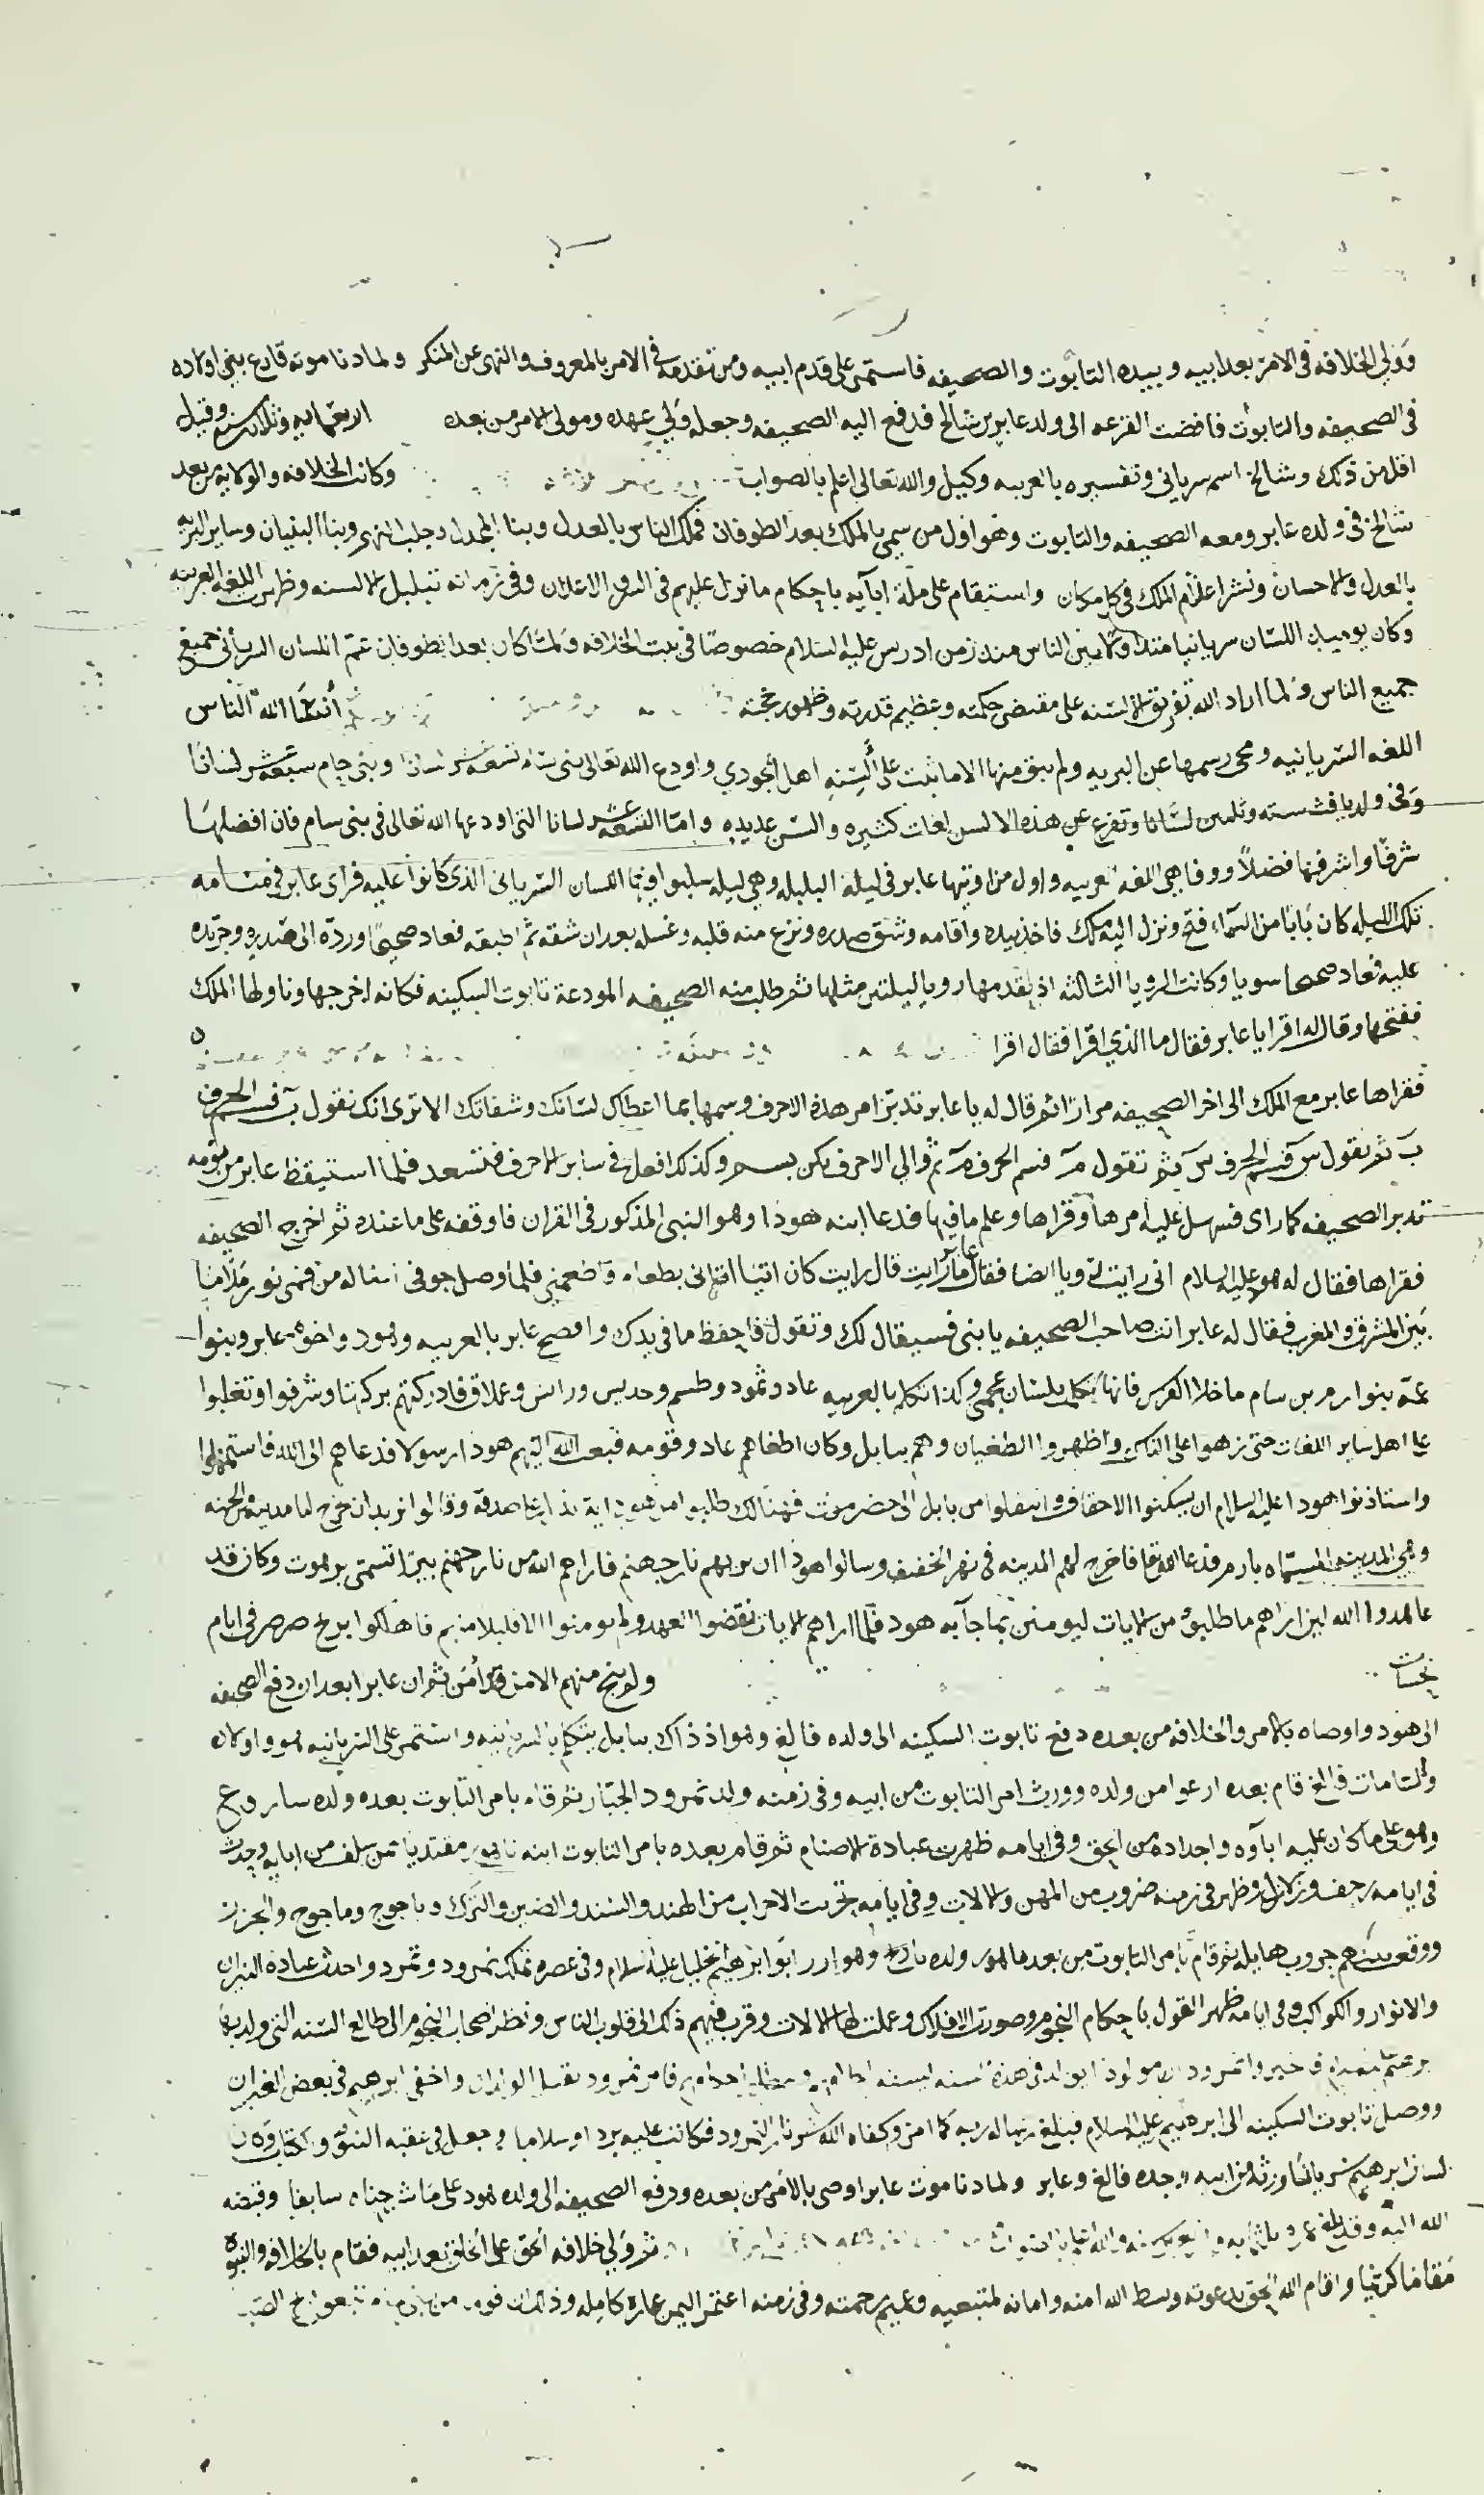 وولي الخلافه في الامر بعد ابيه وبيده التابوت والصحيفه فاستمر على قدم ابيه ومن تقدمه في الامر بالمعروف والنهى عن المنكر ولما دنا موته قارع بين اولاده
في الصحيفه والتابوت فافضت القرعه الى ولد عابر بن شالخ فدفع اليه الصحيفه وجعله ولي عهده ومولى الامر من بعده اربعمايه وثلاث سنه وقيل
اقل من ذلك وشالخ اسم سرياني وتفسيره بالعربيه وكيل والله تعالى اعلم بالصواب وكانت الخلافه والولايه من بعد
شالخ في ولده عابر ومعه الصحيفه والتابوت وهو اول من سمي بالملك بعد الطوفان فملك الناس بالعدل وبنا المجدل وجلب النهر وبنا البنيان وساير البريه
بالعدل والاحسان ونشر اعلام الملك في كل مكان واستقام على ملة ابآيه باحكام ما نزل عليهم في السر والاعلان وفي زمانه تبلبل الالسنه وظهرت اللغه العربيه
وكان يوميذ اللسان سريانيا متداولا بين الناس منذ زمن ادريس عليه السلام خصوصًا في بيت الخلافه ولما كان بعد الطوفان عم اللسان السرياني جميع
جميع الناس ولما اراد الله تفريق الالسنه على مقتضى حكمته وعظيم قدرته وظهور حجته أنسا الله الناس
اللغه السريانيه ومحى رسمها عن البريه ولم يبق منها الا ما ثبت على ألسنه اهل الجودي واودع الله تعالى بني سام تسعة عشر لسانا وبني حام سبعة عشر لسانًا
وفي ولد يافث سته وثلثين لسانا وتفرع عن هذه الالسن لغات كثيره والسن عديده واما التسعة عشر لسانا التي اودعها الله تعالى في بني سام فان افضلها
شرفًا واشرفها فضلاً ووفا هي اللغه العربيه واول من اوتيها عابر في ليلة البلبله وهي ليله سلبوا فيها اللسان السرياني الذي كانوا عليه فراى عابر في منامه
تلك الليله كان بابًا من السمآء فتح ونزل اليه ملك فاخذ بيده واقامه وشق صدره ونزع منه قلبه وغسله بعد ان شقه ثم اطبقه فعاد صحيحًا ورده الى صدره وجرّ يده
عليه فعاد صحيحا سويا وكانت الرويا الثالثه اذ تقدمها رويا ليلتين مثلها ثم طلب منه الصحيفه المودعة تابوت السكينه فكانه اخرجها وناولها الملك
ففتحها وقال له اقرا يا عابر فقال ما الذي اقرا فقال اقرا
فقراها عابر مع الملك الى اخر الصحيفه مرارًا ثم قال له يا عابر تدبر امر هذه الاحرف وسمها بما اعطاك لسانك وشفاتك الا ترى انك تقول ب فسم الحرف
ب ثم تقول س فسم الحرف س ثم تقول م فسم الحرف م ثم والي الاحرف يكن بسم وكذلك افعل في ساير الاحرف فتسعد فلما استيقظ عابر من نومه
تدبر الصحيفه كما راى فسهل عليه امرها وقراها وعلم ما فيها فدعا ابنه هودا وهو النبي المذكور في القران فاوقفه على ما عنده ثم اخرج الصحيفه
فقراها فقال له هود عليه السلام اني رايت رويا ايضا فقال عابر ما رايت قال رايت كان اتيا اتاني بطعام واطعمني فلما وصل جوفي من فمي نور ملأ ما
بين المشرق والمغرب فقال له عابر انت صاحب الصحيفه يا بني فسيقال لك وتقول فاحفظ ما في يدك وافصح عابر بالعربيه وهود واخوه عابر وبنوا
عمه بنوا ارم بن سام ما خلا الفرس فانها تكلمت بلسان عجمي وكذا تكلم بالعربيه عاد وثمود وطسم وجديس ورائش وعملاق فادركتهم بركتها وشرفوا وتغلبوا
على اهل ساير اللغات حتى زهوا على الناس واظهروا الطغيان وهم ببابل وكان اطغاهم عاد وقومه فبعث الله اليهم هودا رسولا فدعاهم الى الله فاستمهلوا
واستاذنوا هودا عليه السلام ان يسكنوا الاحقاف وانتقلوا من بابل الى حضرموت فهنالك طلبوا من هود اية صدقه وقالوا نريد ان تخرج لنا مدينه الجنه
وهي المدينه المسماه بارم فدعا الله تعالى فاخرج لهم المدينه في نهر الخفيف وسالوا هودا ان يريهم نار جهنم فاراهم الله من نار جهنم بيرًا تسمى برهوت وكان قد
عاهدوا الله لين اراهم ما طلبوه من الايات ليومنن بما جآ به هود فلما اراهم الايات نقضوا العهد ولم يومنوا الا قليلا منهم فاهلكوا بريح صرصر في ايام
نحسات ولم ينج منهم الا من آمن ثم ان عابرا بعد ان دفع الصحيفه
الى هود واوصاه بالامر والخلافه من بعده دفع تابوت السكينه الى ولده فالغ وهو اذ ذاك ببابل يتكلم بالسريانيه واستمر على السريانيه هو واولاده
ولما مات فالغ قام بعده ارعوا من ولده وورث امر التابوت من ابيه وفي زمنه ولد نمرود الجبار ثم قام بامر التابوت بعده ولده ساروغ
وهو على ما كان عليه ابآوه واجداده من الحق وفي ايامه ظهرت عبادة الاصنام ثم قام بعده بامر التابوت ابنه ناحور مقتديا بمن سلف من ابايه وحدث
في ايامه رجف وزلازل وظهر في زمنه ضروب من المهن والالات وفي ايامه تحزبت الاحزاب من الهند والسند والصين والترك وياجوج وماجوج والخزر
ووقع بينهم حروب هايله ثم قام بامر التابوت من بعد ماهور ولده تارخ وهو ازر ابو ابرهيم الخليل عليه السلام وفي عصره تملك نمرود وتمرد واحدث عبادة النيران
والانوار والكواكب وفي ايامه ظهر القول باحكام النجوم وصورت الافلاك وعملت لها الالات وقرب فهم ذلك الى قلوب الناس ونظر اصحاب النجوم الى طالع السنه التي ولد بها
ابرهيم فاخبروا نمرود ان مولودا يولد في هذه السنه فامر نمرود بقتل الولدان واخفي ابرهيم في بعض الغيران
ووصل تابوت السكينه الى ابرهيم عليه السلام فبلغ رساله ربه كما امر وكفاه الله شر نار النمرود فكانت عليه بردا وسلاما وجعل في عقبه النبوه وكتاب وكان
لسان ابرهيم سريانيًا ورثه من ابيه وجده فالغ وعابر ولما دنا موت عابر اوصى بالامر من بعده ودفع الصحيفه الى ولده هود على ما شرحناه سابقا وقبضه
الله اليه وقد بلغ ثم ولي خلافة الحق على الخلق بعد ابيه فقام بالخلافه والنبوه
مقاما كريما واقام الله الحق بدعوته وبسط الله امنه وامانه لمتبعيه وعميم رحمته وفي زمنه اعتمر اليمن عماره كامله وذلك ان قوم من بني